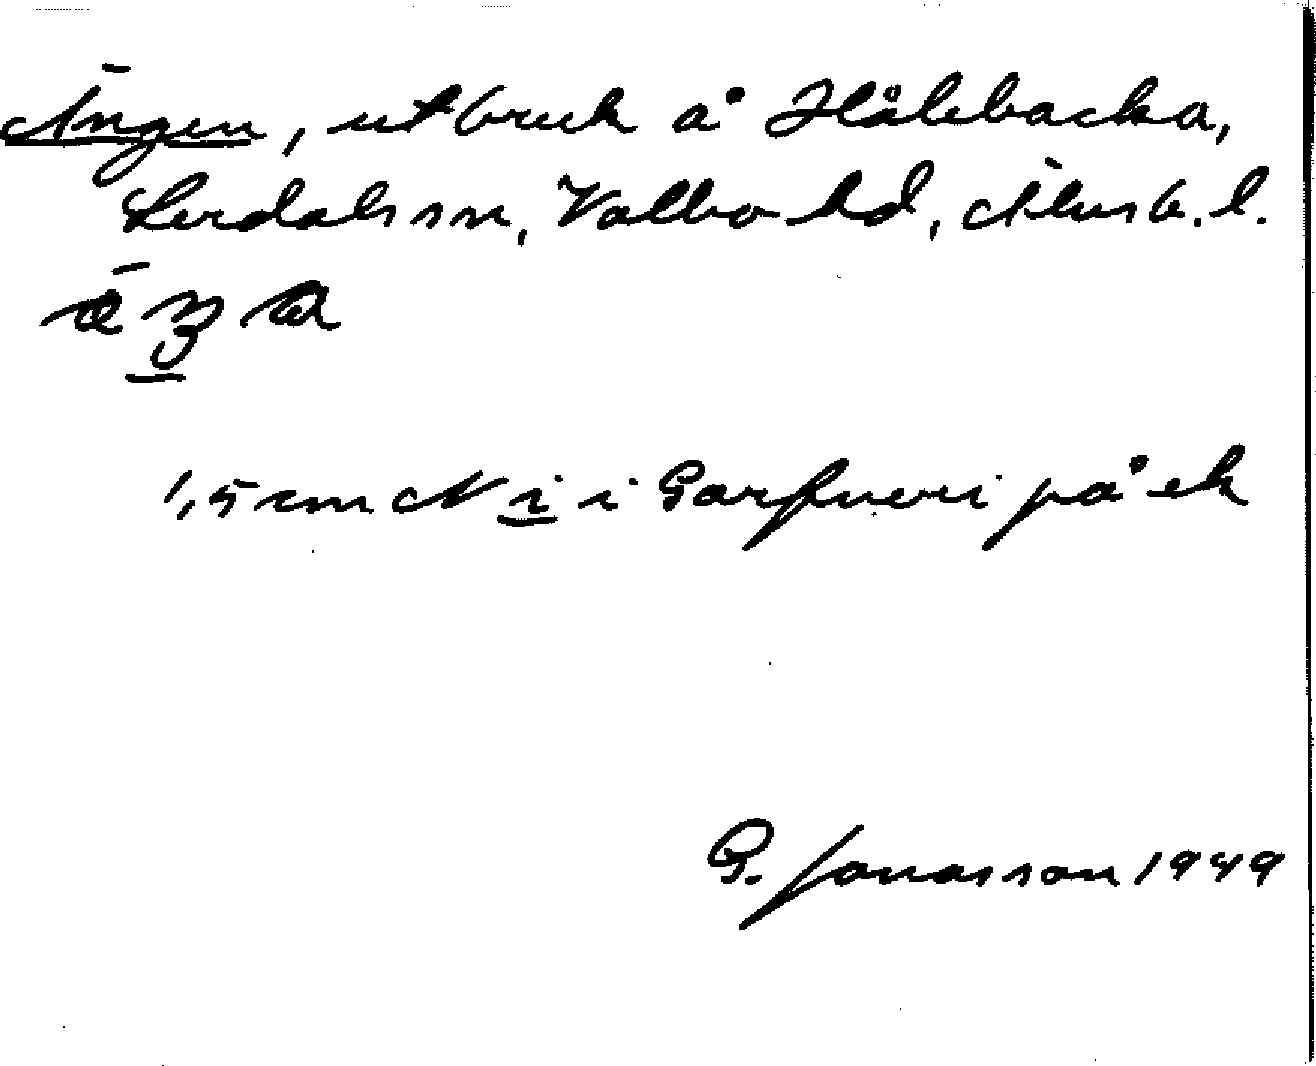 Ängen, utbruk å Hålebacka,
Lerdals sn, Valbo hd, Älvsb. l.
äŋa
1,5 cm N i i Torpveri på ek
G. Jonasson 1949